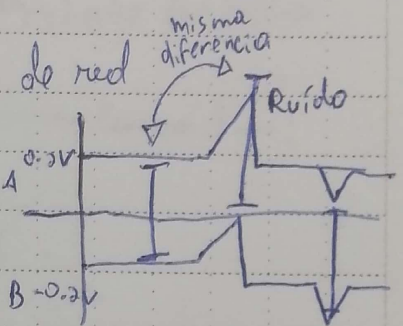 misma
diferencia
de red
Ruído
0.2V
A
B -0.2V